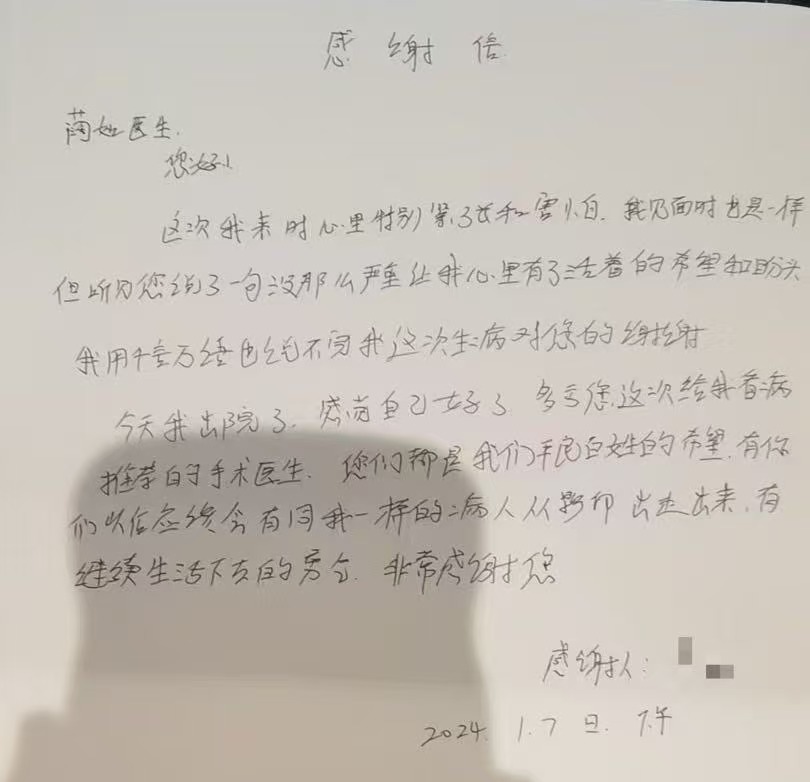 感谢信
医生.
您好!
这次我来时心里特别紧了和害怕. 我见面时也是一样
但听见您说了一句没那么严重让我心里有了活着的希望和盼头
我用千言万语也说不完我这次生病对您的谢谢
今天我出院了. 感觉自己好了 多亏您这次给我看病
推荐的手术医生. 您们都是我们平民百姓的希望. 有你
们以后应终会有同我一样的病人从 出走出来. 有
继续生活下去的勇气. 非常感谢您
感谢人:
2024. 1. 7 日. 下午